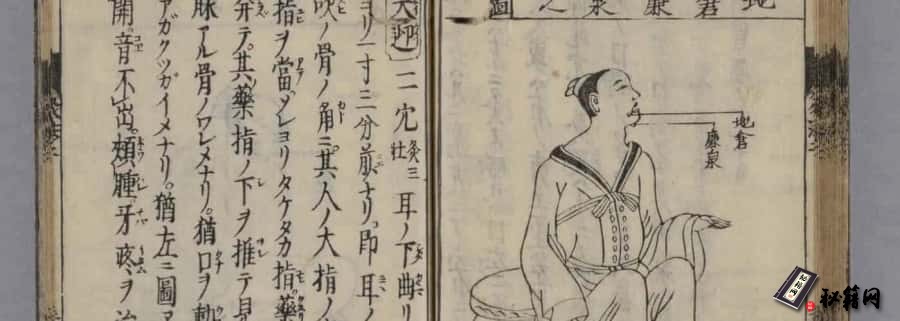 地倉廉泉之圖
地倉
廉泉
大迎二穴灸三壯耳ノ下曲リ
ヨリ一寸三分前ナリ即耳ノ
吹ノ骨ノ角ニ其人ノ大指ノ
指ヲ當ソレヨリタケタカ指藥
弁テ其藥指ノ下ヲ推テ見
脉アル骨ノワレメナリ。猶口ヲ動
アガクツガイメナリ。猶左ニ圖
開音不出頬腫牙疼ヲ治
秘籍网